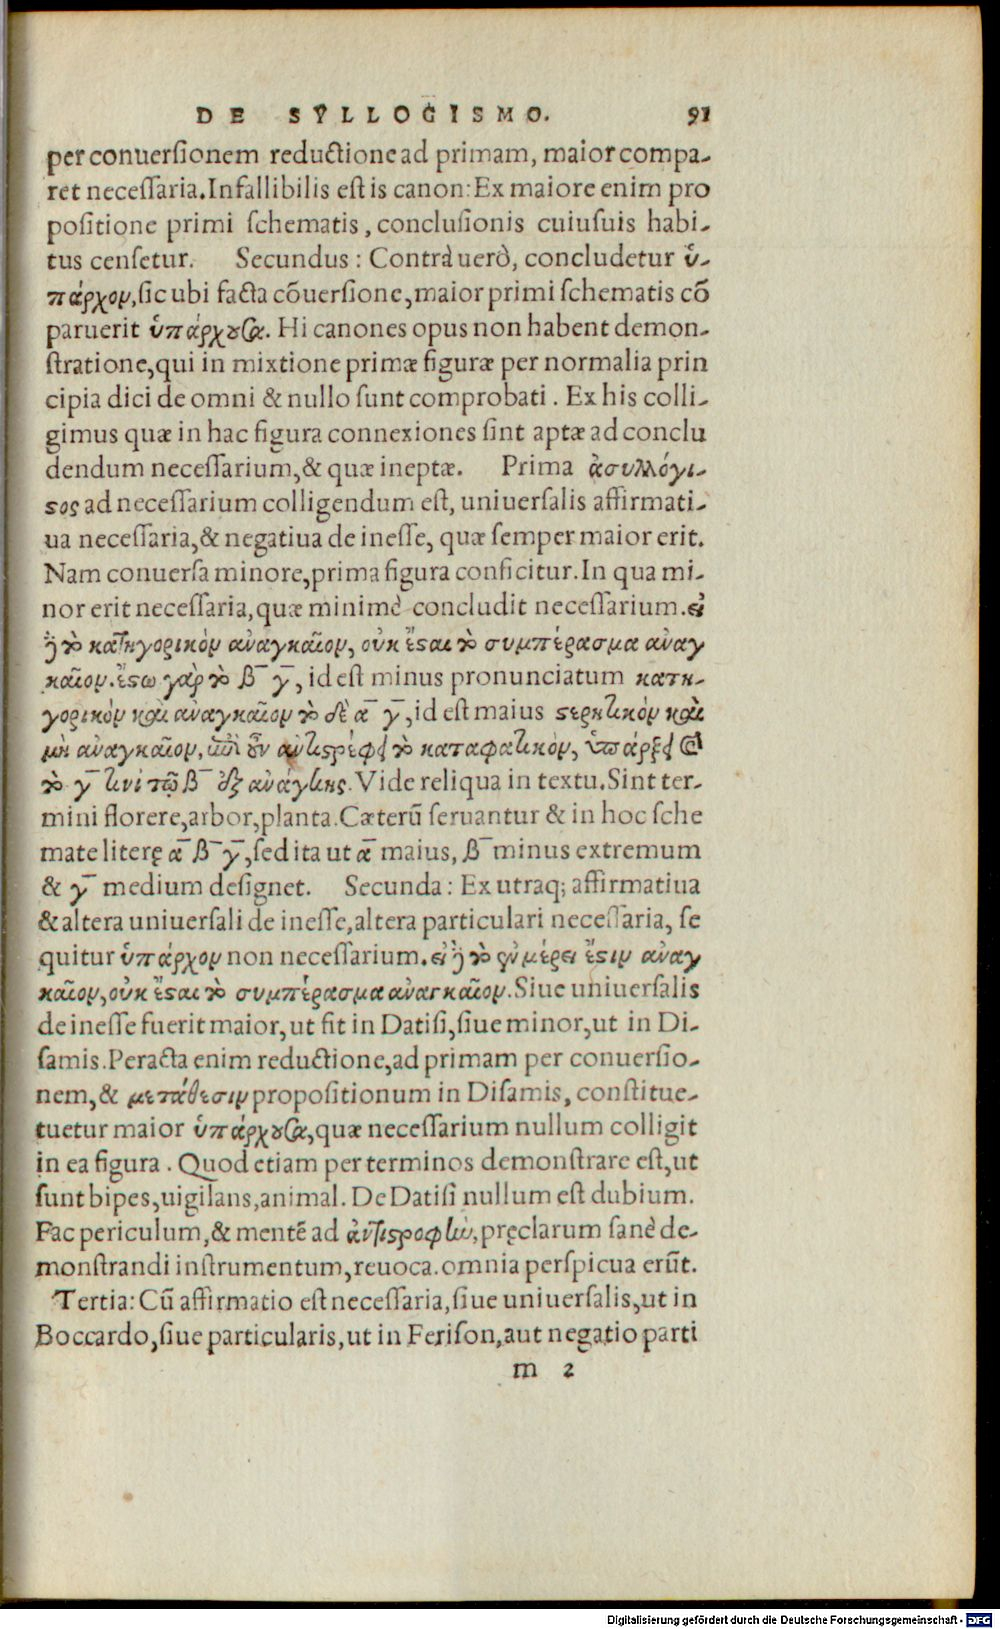 DE SYLLOGISMO. 91
per conuerſionem reductione ad primam, maior compa-
ret neceſſaria. Infallibilis eſt is canon: Ex maiore enim pro
poſitione primi ſchematis, concluſionis cuiuſuis habi-
tus cenſetur. Secundus: Contrà uerò, concludetur ὑ-
πάρχον, ſic ubi facta cōuerſione, maior primi ſchematis cō
paruerit ὑπάρχουσα. Hi canones opus non habent demon-
ſtratione, qui in mixtione primæ figuræ per normalia prin
cipia dici de omni & nullo ſunt comprobati. Ex his colli-
gimus quæ in hac figura connexiones ſint aptæ ad conclu
dendum neceſſarium, & quæ ineptæ. Prima ἀσυλλόγι-
ϛος ad neceſſarium colligendum eſt, uniuerſalis affirmati-
ua neceſſaria, & negatiua de ineſſe, quæ ſemper maior erit.
Nam conuerſa minore, prima figura conficitur. In qua mi-
nor erit neceſſaria, quæ minimè concludit neceſſarium. εἰ
ἢ τὸ κατηγορικὸν ἀναγκαῖον, οὐκ ἔϛαι τὸ συμπέρασμα ἀναγ
καῖον. ἔϛω γὰρ τὸ β̄ γ̄, id eſt minus pronunciatum κατη-
γορικὸν καὶ ἀναγκαῖον τὸ δὲ ᾱ γ̄, id eſt maius ϛερητικὸν καὶ
μὴ ἀναγκαῖον, ἐπεὶ οὖν ἀντιϛρέφει τὸ καταφατικὸν, ὑπάρξει
τὸ γ̄ τινὶ τῷ β̄ ἐξ ἀνάγκης. Vide reliqua in textu. Sint ter-
mini florere, arbor, planta. Cæterū ſeruantur & in hoc ſche
mate literę ᾱ β̄ γ̄, ſed ita ut ᾱ maius, β̄ minus extremum
& γ̄ medium deſignet. Secunda: Ex utraq; affirmatiua
& altera uniuerſali de ineſſe, altera particulari neceſſaria, ſe
quitur ὑπάρχον non neceſſarium. εἰ ἢ τὸ ἐν μέρει ἔϛιν ἀναγ
καῖον, οὐκ ἔϛαι τὸ συμπέρασμα ἀναγκαῖον. Siue uniuerſalis
de ineſſe fuerit maior, ut fit in Datiſi, ſiue minor, ut in Di-
ſamis. Peracta enim reductione, ad primam per conuerſio-
nem, & μετάθεσιν propoſitionum in Diſamis, conſtitue-
tuetur maior ὑπάρχουσα, quæ neceſſarium nullum colligit
in ea figura. Quod etiam per terminos demonſtrare eſt, ut
ſunt bipes, uigilans, animal. De Datiſi nullum eſt dubium.
Fac periculum, & mentē ad ἀντιϛροφὴν, pręclarum ſanè de-
monſtrandi inſtrumentum, reuoca. omnia perſpicua erūt.
Tertia: Cū affirmatio eſt neceſſaria, ſiue uniuerſalis, ut in
Boccardo, ſiue particularis, ut in Feriſon, aut negatio parti
m 2
Digitalisierung gefördert durch die Deutsche Forschungsgemeinschaft - DFG